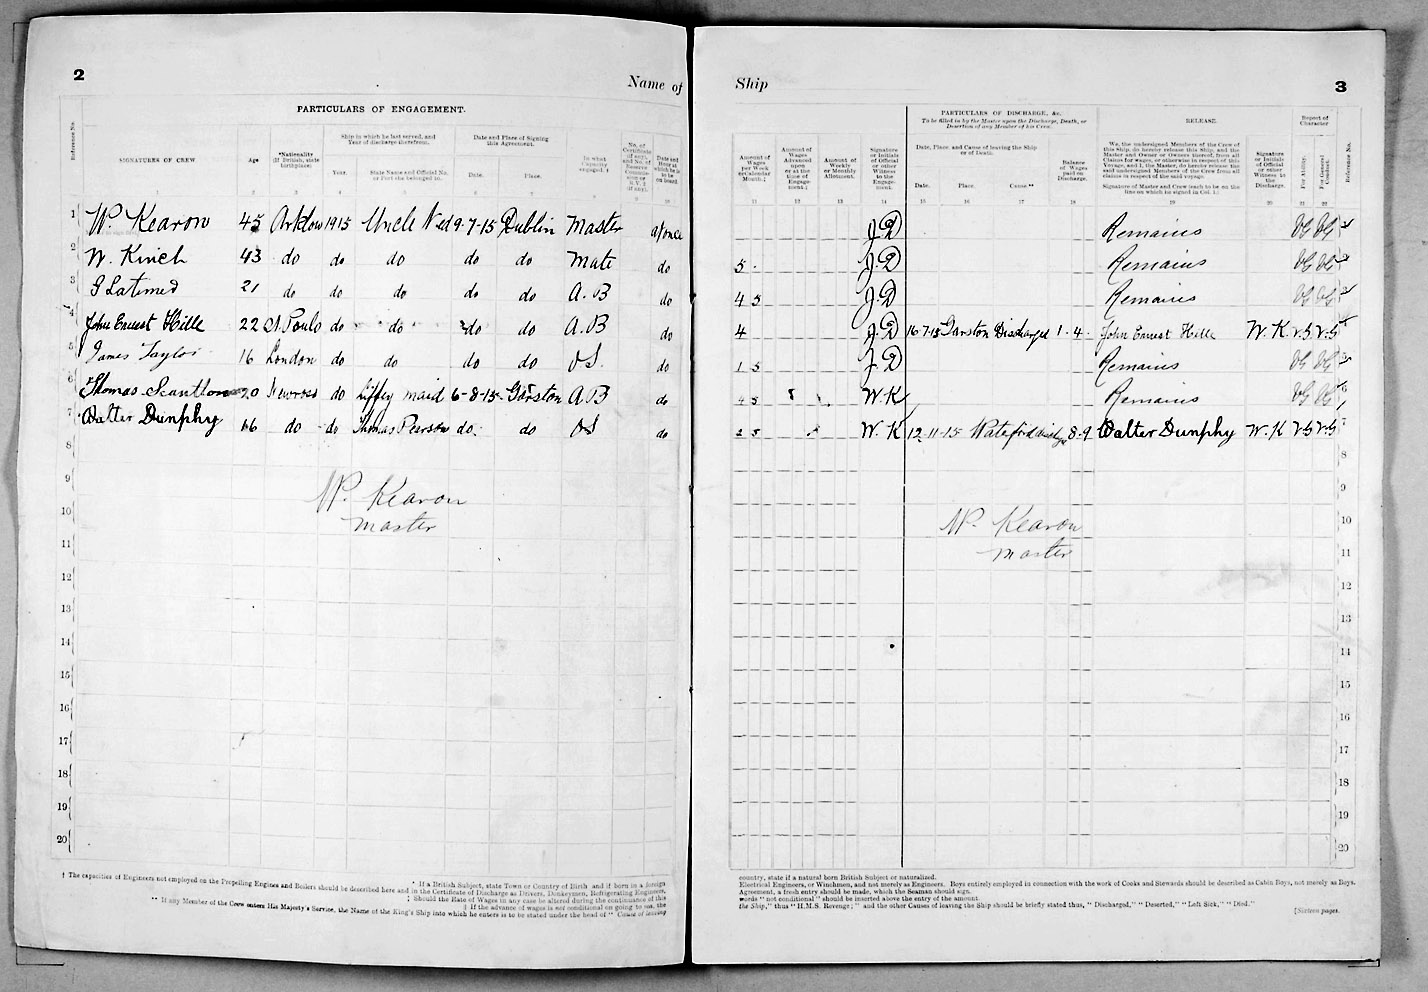 2
Name of
Ship
3
PARTICULARS OF ENGAGEMENT.
Reference No.
SIGNATURES OF CREW
Age
*Nationality (If British, state birthplace)
Ship in which he last served, and Year of discharge therefrom.
Year.
State Name and Official No. or Port she belonged to.
Date and Place of Signing this Agreement.
Date.
Place.
In what Capacity engaged. †
1 W. Kearon 45 Arklow 1915 Uncle Ned 9-7-15 Dublin Master at once
2 W. Kinch 43 do do do do do Mate do
3 Latimed 21 do do do do do A.B do
4 John Ernest Hille 22 St Pauls do do do do A.B do
5 James Taylor 16 London do do do do OS. do
6 Thomas Scantlon 20 Newross do Liffey maid 6-8-15 Garston A B do
7 Walter Dunphy 66 do do Thomas Pearson do. do OS do
8
9
10
11
12
13
14
15
16
17
18
19
20
W. Kearon
master
† The capacities of Engineers not employed on the Propelling Engines and Boilers should be described here and in the Certificate of Discharge as Drivers, Donkeymen, Refrigerating Engineers,
* If a British Subject, state Town or Country of Birth and if born in a foreign
‡ Should the Rate of Wages in any case be altered during the continuance of this
‖ If the advance of wages is not conditional on going to sea, the
** If any Member of the Crew enters His Majesty's Service, the Name of the King's Ship into which he enters is to be stated under the head of "Cause of leaving
PARTICULARS OF DISCHARGE, &c.
To be filled in by the Master upon the Discharge, Death, or Desertion of any Member of his Crew.
Amount of Wages per Week or Calendar Month.‡
Amount of Wages Advanced upon or at the time of Engagement.‖
Amount of Weekly or Monthly Allotment.
Signature or Initials of Official or other Witness to the Engagement.
Date, Place, and Cause of leaving the Ship or of Death.
Date.
Place.
Cause.**
Balance of Wages paid on Discharge.
RELEASE.
We, the undersigned Members of the Crew of this Ship, do hereby release this Ship, and the Master and Owner or Owners thereof, from all Claims for wages, or otherwise in respect of this Voyage, and I, the Master, do hereby release the said undersigned Members of the Crew from all claims in respect of the said voyage.
Signature of Master and Crew (each to be on the line on which he signed in Col. 1.)
Signature or Initials of Official or other Witness to the Discharge.
Report of Character
For Ability.
For General Conduct.
Reference No.
11 12 13 14 15 16 17 18 19 20 21 22
J.D Remains VG VG
5 J.D Remains VG VG
4 5 J.D Remains VG VG
4 J.D 16-7-15 Garston Discharged 1-4- John Ernest Hille W. K V.G V.G
1 5 J.D Remains VG VG
4 5 W.K Remains VG VG
2 5 W. K 12-11-15 Waterford 8-9 Walter Dunphy W. K V.G V.G
8
9
10
11
12
13
14
15
16
17
18
19
20
W. Kearon
master
country, state if a natural born British Subject or naturalized.
Electrical Engineers, or Winchmen, and not merely as Engineers. Boys entirely employed in connection with the work of Cooks and Stewards should be described as Cabin Boys, not merely as Boys.
Agreement, a fresh entry should be made, which the Seaman should sign.
words "not conditional" should be inserted above the entry of the amount
the Ship," thus "H.M.S. Revenge;" and the other Causes of leaving the Ship should be briefly stated thus, "Discharged," "Deserted," "Left Sick," "Died."
[Sixteen pages.